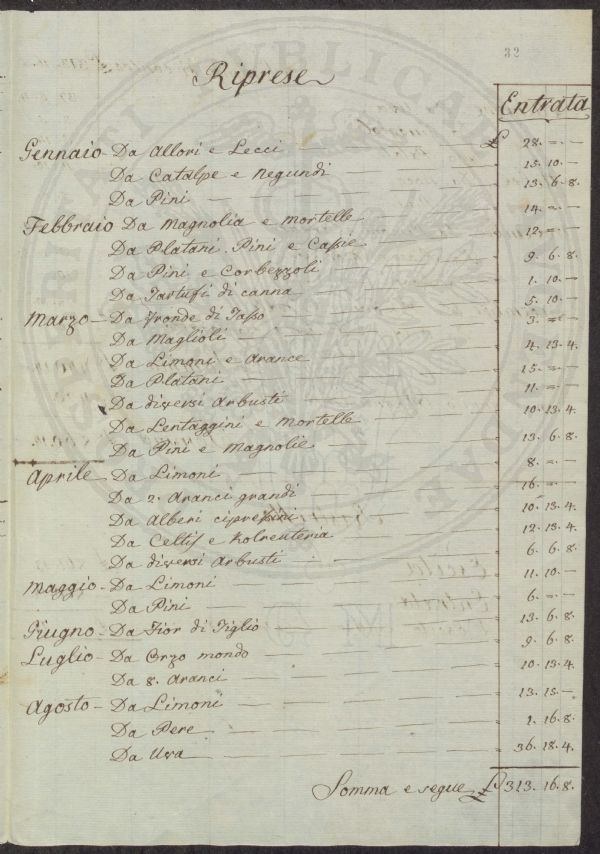 32
Riprese
Entrata
Gennaio - Da Allori e Lecci — £ 28. = . —
Da Catalpe e Negundi — 15. 10. —
Da Pini — 13. 6. 8.
Febbraio Da Magnolia e mortelle — 14. = . —
Da Platani, Pini e Cassie — 12. = . —
Da Pini e Corbezzoli — 9. 6. 8.
Da Tartufi di canna — 1. 10. —
Marzo - Da Fronde di Tasso — 5. 10. —
Da Maglioli — 3. = . —
Da Limoni e Arance — 4. 13. 4.
Da Platani — 15. = . —
Da diversi Arbusti — 11. = . —
Da Lentaggini e Mortelle — 10. 13. 4.
Da Pini e Magnolie — 13. 6. 8.
Aprile - Da Limoni — 8. = . —
Da 2. Aranci grandi — 16. = . —
Da Alberi cipressini — 10. 13. 4.
Da Celtis e Kolreuteria — 12. 13. 4.
Da diversi Arbusti — 6. 6. 8.
Maggio - Da Limoni — 11. 10. —
Da Pini — 6. = . —
Giugno - Da Fior di Tiglio — 13. 6. 8.
Luglio - Da Orzo mondo — 9. 6. 8.
Da 8. Aranci — 10. 13. 4.
Agosto - Da Limoni — 13. 15. —
Da Pere — 1. 16. 8.
Da Uva — 36. 18. 4.
Somma e segue £ 313. 16. 8.